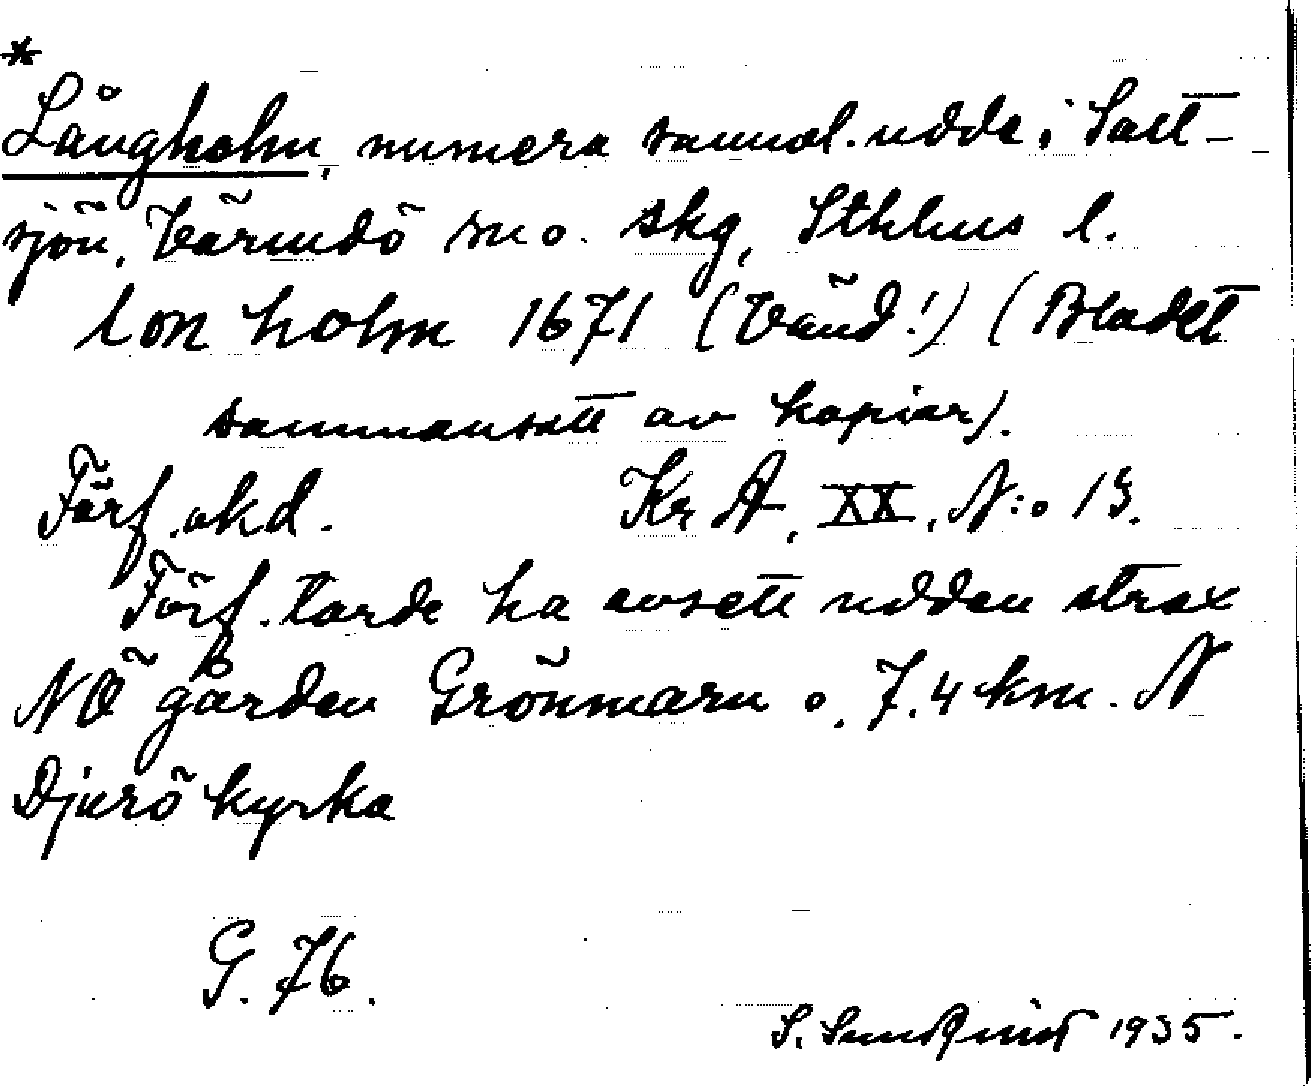 *
Långholm, numera sannol. udde i Salt-
sjön, Värmdö sn o. skg, Sthlms l.
lon holm 1671 (Vänd!) (Bladet
sammansatt av kopior).
Förf. okd. Kr A, XX, N:o 13.
Förf. torde ha avsett udden strax
NÖ gården Grönmarn o. 7,4 km. N
Djurö kyrka
G. 76.
S. Sundquist 1935.